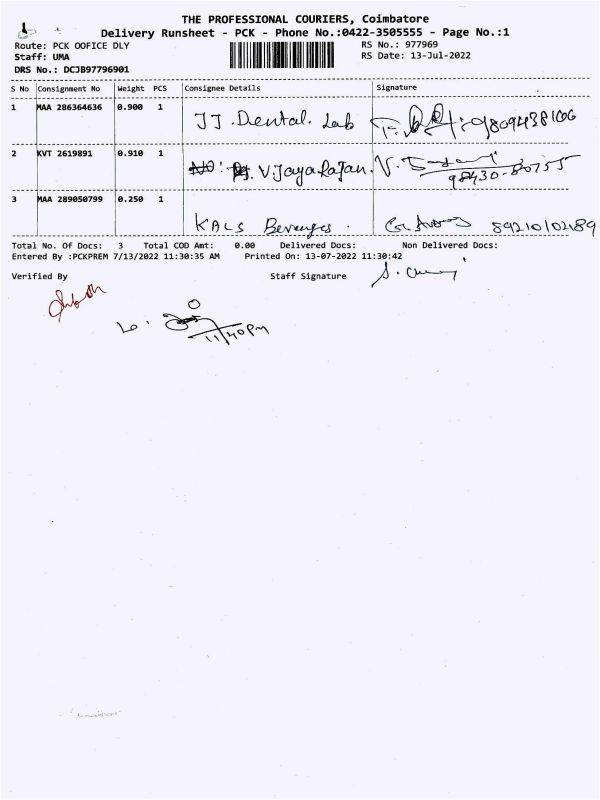 THE PROFESSIONAL COURIERS, Coimbatore
Delivery Runsheet - PCK - Phone No.:0422-3505555 - Page No.:1
Route: PCK OOFICE DLY
RS No.: 977969
Staff: UMA
RS Date: 13-Jul-2022
DRS No.: DCJB97796901
S No Consignment No Weight PCS Consignee Details Signature
1 MAA 286364636 0.900 1
JJ. Dental. Lab
2 KVT 2619891 0.910 1
V. Jayarajan. 98430-80755
3 MAA 289050799 0.250 1
KALS Beverages.
Total No. Of Docs: 3 Total COD Amt: 0.00 Delivered Docs: Non Delivered Docs:
Entered By :PCKPREM 7/13/2022 11:30:35 AM Printed On: 13-07-2022 11:30:42
Verified By Staff Signature
11/40pm